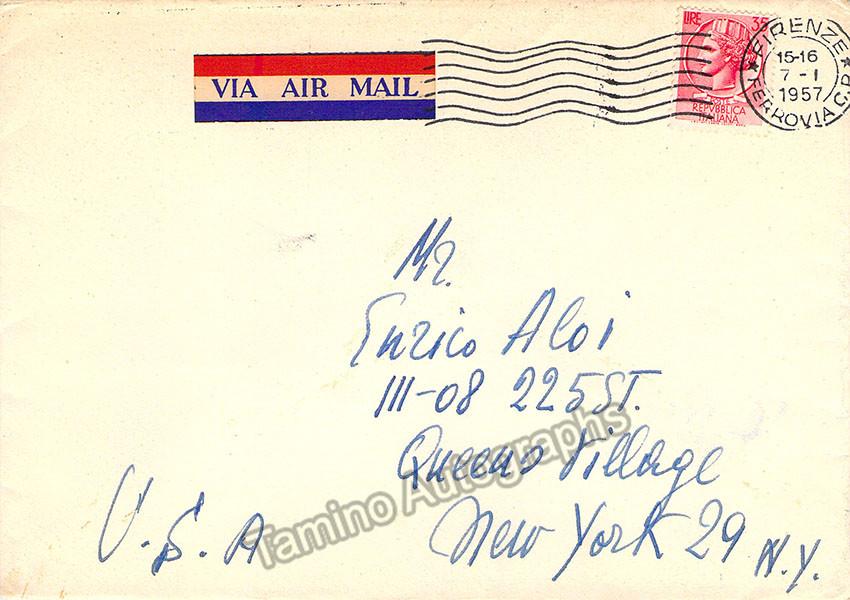 VIA AIR MAIL
LIRE 35
REPVBBLICA
ITALIANA
FIRENZE
15-16
7 - I
1957
FERROVIA C.P.
Mr.
Enrico Aloi
111-08 225 ST.
Queens Village
New York 29 N.Y.
U.S.A
Tamino Autographs